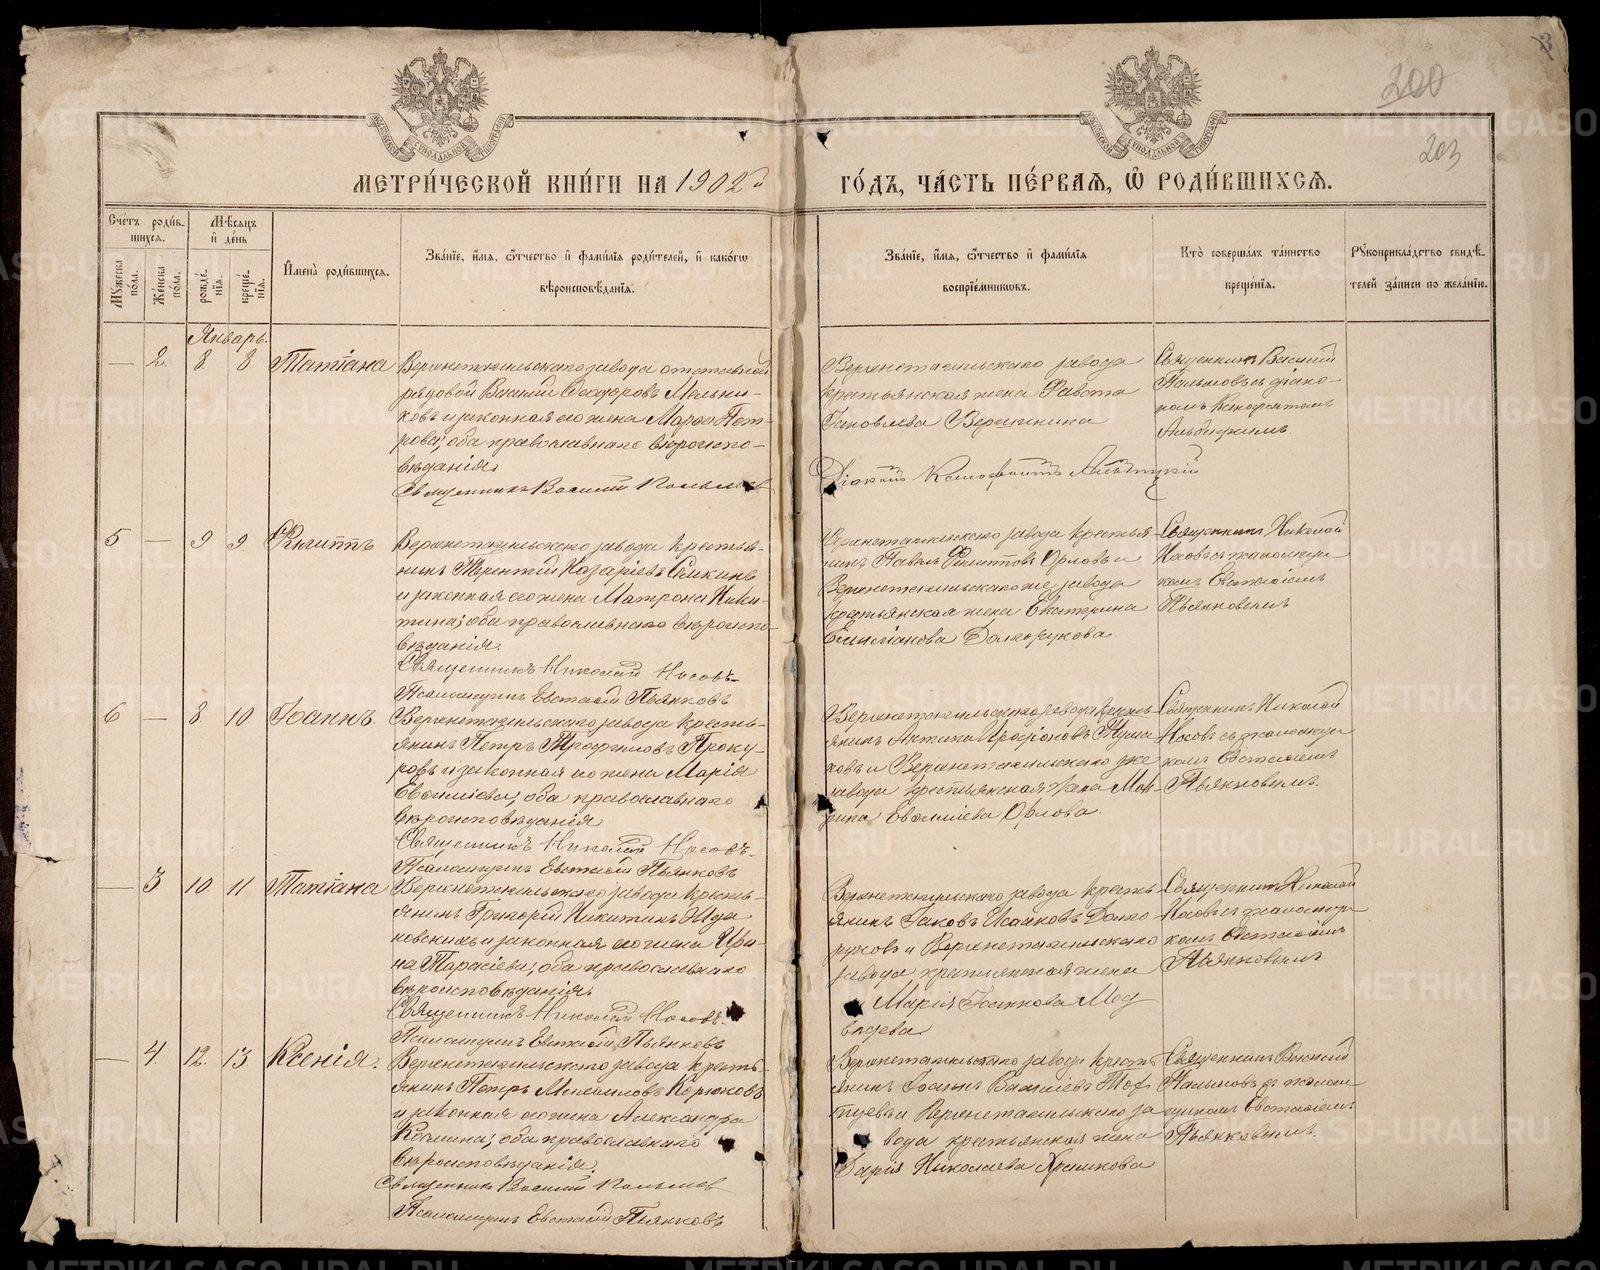 3
200
203
МЕТРИ́ЧЕСКОЙ КНИ́ГИ НА 1902й ГО́ДЪ, ЧА́СТЬ ПЕ́РВАЯ, Ѡ РОДИ́ВШИХСЯ.
Сче́тъ роди́в-
шихся.
Мѣсяцъ
и день
Му́жеска
по́ла.
Же́нска
по́ла.
рожде́-
нїя.
креще́-
нїя.
Имена̀ роди́вшихся.
Зва́нїе, и́мя, ѻ́тчество и фами́лїя роди́телей, и како́гѡ
вѣроисповѣ́данїя.
Зва́нїе, и́мя, ѻ́тчество и фами́лїя
воспрїе́мникѡвъ.
Кто̀ соверша́лъ та́инство
креще́нїя.
Рукоприкла́дство свидѣ́-
телей за́писи по жела́нїю.
Январь.
— 2 8 8 Татіана
Верхнетагильскаго завода отставной
рядовой Василій Ѳеодоровъ Мельни-
ковъ и законная его жена Марѳа Пет-
рова, оба православнаго вѣроиспо-
вѣданія.
Священникъ Василій
Верхнетагильскаго завода
крестьянская жена
Іаковлева
Священникъ Василій
съ діако-
номъ Ксенофонтомъ
Діаконъ Ксенофонтъ
5 — 9 9 Филиппъ
Верхнетагильскаго завода крестья-
нинъ Терентій Назаріевъ
и законная его жена Матрона Ники-
тина, оба православнаго вѣроиспо-
вѣданія.
Священникъ Николай Носовъ
Псаломщикъ Евстаѳій Пьянковъ
Верхнетагильскаго завода крестья-
нинъ Павелъ Филипповъ Орловъ и
Верхнетагильскаго же завода
крестьянская жена Екатерина
Емиліанова Долгорукова.
Священникъ Николай
Носовъ съ псаломщи-
комъ Евстаѳіемъ
Пьянковымъ
6 — 8 10 Іоаннъ.
Верхнетагильскаго завода кресть-
янинъ Петръ Трофимовъ Проку-
ровъ и законная его жена Марія
Евѳиміева, оба православнаго
вѣроисповѣданія
Священникъ Николай Носовъ
Псаломщикъ Евстаѳій Пьянковъ
Верхнетагильскаго завода кресть-
янинъ
ковъ и Верхнетагильскаго же
завода крестьянская жена Мат-
рина Евѳиміева Орлова.
Священникъ Николай
Носовъ съ псаломщи-
комъ Евстаѳіемъ
Пьянковымъ.
— 3 10 11 Татіана
Верхнетагильскаго завода кресть-
янинъ Григорій Никитинъ Жда-
новскихъ и законная его жена Ири-
на Тарасіева, оба православнаго
вѣроисповѣданія.
Священникъ Николай Носовъ.
Псаломщикъ Евстаѳій Пьянковъ
Верхнетагильскаго завода кресть-
янинъ Іаковъ Исааковъ Долго-
руковъ и Верхнетагильскаго
завода крестьянская жена
Марія Іоаннова Мед
вѣдева
Священникъ Николай
Носовъ съ псаломщи-
комъ Евстаѳіемъ
Пьянковымъ
— 4 12. 13 Ксенія.
Верхнетагильскаго завода кресть-
янинъ Петръ Михаиловъ Корюковъ
и законная его жена Александра
Козмина, оба православнаго
вѣроисповѣданія.
Священникъ Василій
Псаломщикъ Евстаѳій Пьянковъ
Верхнетагильскаго завода кресть-
янинъ Іоаннъ Василіевъ
и Верхнетагильскаго за
вода крестьянская жена
Дарія Николаева Хромкова
Священникъ Василій
съ псалом-
щикомъ Евстаѳіемъ
Пьянковымъ.
METRIKI.GASO-URAL.RU